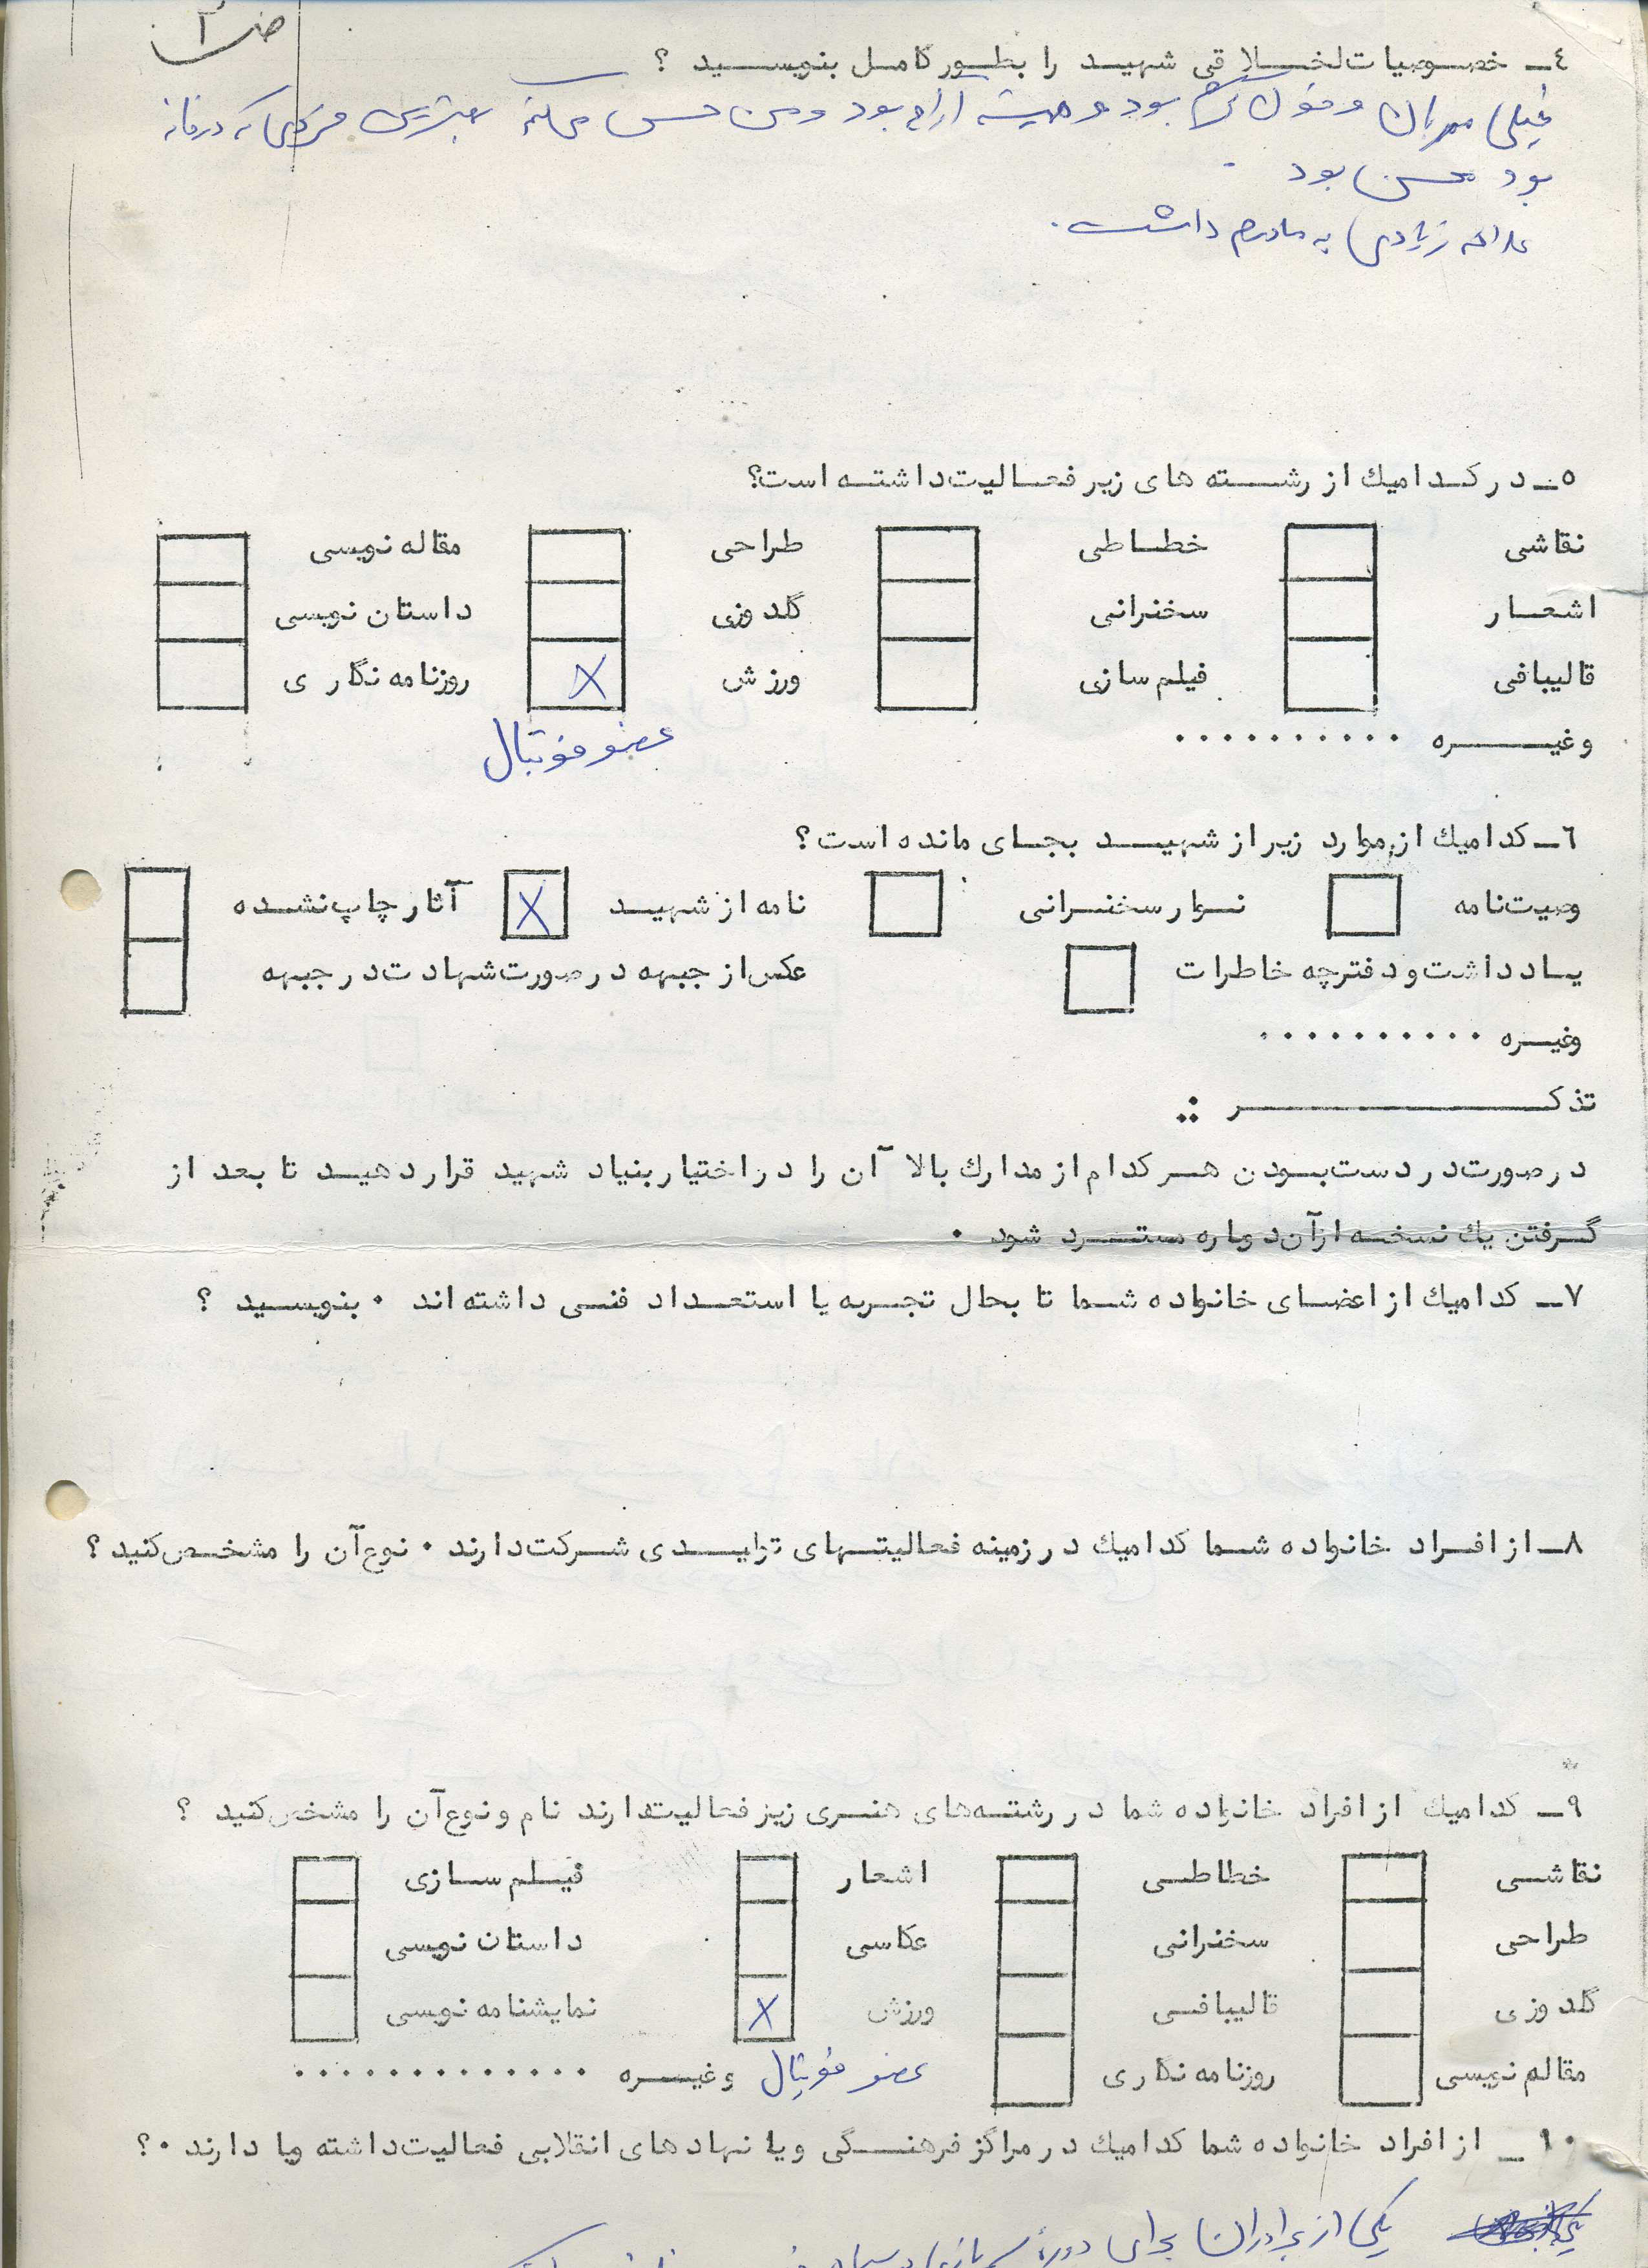 ٤ـ خصوصیات اخلاقی شهید را بطور کامل بنویسید ؟
خیلی مهربان و خوش بود و همیشه آرام بود و من حس می‌کنم بهترین فردی که در خانه
بود محسن بود
علاقه زیادی به مادرم داشت.
٥ـ در کدامیك از رشته های زیر فعالیت داشته است؟
نقاشی خطاطی طراحی مقاله نویسی
اشعار سخنرانی گلدوزی داستان نویسی
قالیبافی فیلم سازی ورزش X روزنامه نگاری
وغیره ..........
عضو فوتبال
٦ـ کدامیك از موارد زیر از شهید بجای مانده است؟
وصیت نامه نوار سخنرانی نامه از شهید X آثار چاپ نشده
یادداشت و دفترچه خاطرات عکس از جبهه در صورت شهادت در جبهه
وغیره ..........
تذکر :
در صورت در دست بودن هر کدام از مدارك بالا آن را در اختیار بنیاد شهید قرار دهید تا بعد از
گرفتن یك نسخه از آن دوباره مسترد شود .
٧ـ کدامیك از اعضای خانواده شما تا بحال تجربه یا استعداد فنی داشته اند . بنویسید ؟
٨ـ از افراد خانواده شما کدامیك در زمینه فعالیتهای تولیدی شرکت دارند . نوع آن را مشخص کنید ؟
٩ـ کدامیك از افراد خانواده شما در رشته‌های هنری زیر فعالیت دارند نام و نوع آن را مشخص کنید ؟
نقاشی خطاطی اشعار فیلم سازی
طراحی سخنرانی عکاسی داستان نویسی
گلدوزی قالیبافی ورزش X نمایشنامه نویسی
مقاله نویسی روزنامه نگاری عضو فوتبال وغیره .............
١٠ـ از افراد خانواده شما کدامیك در مراکز فرهنگی و یا نهادهای انقلابی فعالیت داشته و یا دارند .؟
یکی از برادران برای دوره سربازی